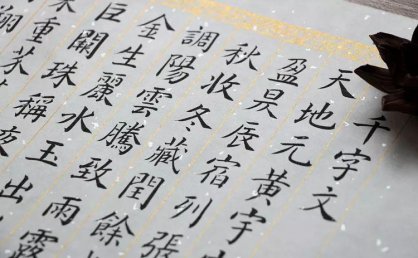 千字文
天地元黃宇
盈昃辰宿列張
秋收冬藏閏餘
調陽雲騰致雨露
金生麗水玉出
巨闕珠稱夜
重芥
翔